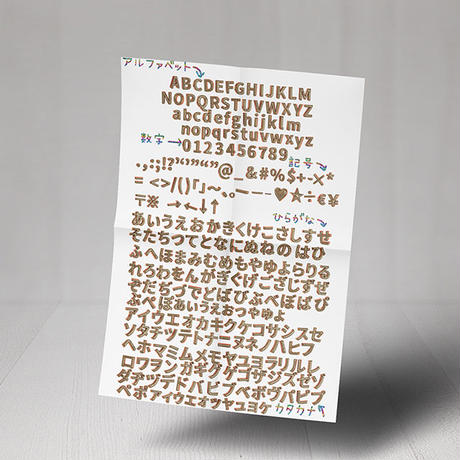 アルファベット
ABCDEFGHIJKLM
NOPQRSTUVWXYZ
abcdefghijklm
nopqrstuvwxyz
数字→
0123456789
記号
.,:;!?'‘’"“”@_&#%$+-×*
=<>/()「」~、。—ー-♥★÷€¥
〒※→←↓↑
ひらがな
あいうえおかきくけこさしすせ
そたちつてとなにぬねのはひ
ふへほまみむめもやゆよらりる
れろわをんがぎぐげござじずぜ
ぞだぢづでどばびぶべぼぱぴ
ぷぺぽあいうえおっつゃゅょ
アイウエオカキクケコサシスセ
ソタチツテトナニヌネノハヒフ
ヘホマミムメモヤユヨラリルレ
ロワヲンガギグゲゴザジズゼゾ
ダヂヅデドバビブベボヴパピプ
ペポァィゥェォッャュョヶ
カタカナ